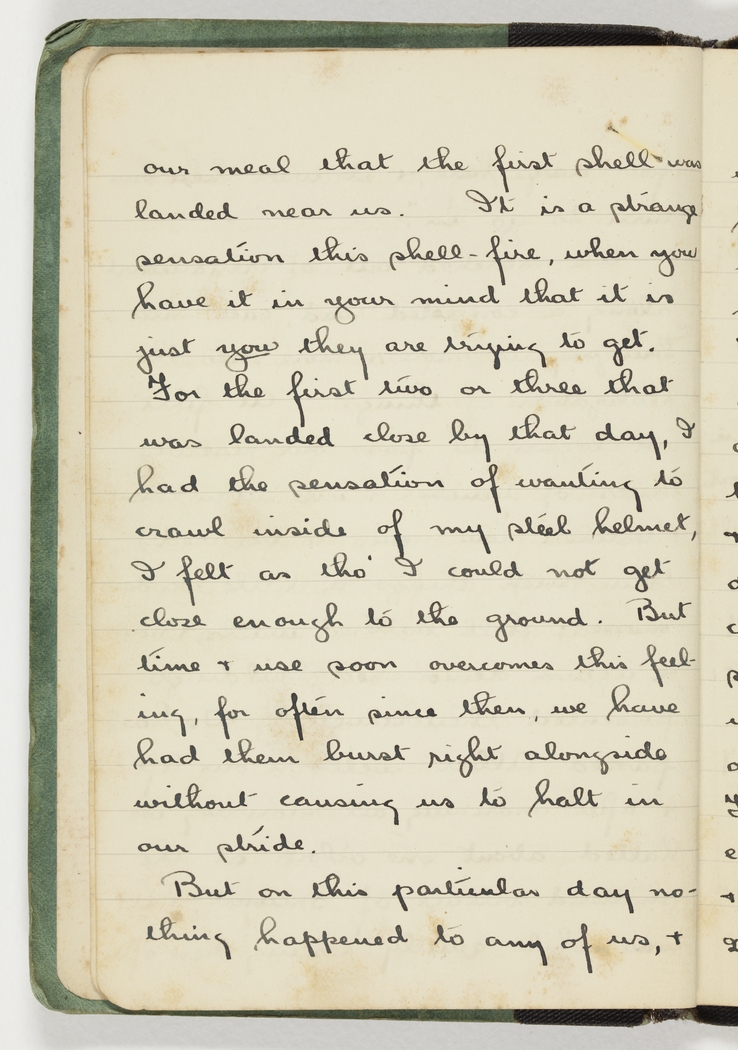 our meal that the first shell was
landed near us. It is a strange
sensation this shell-fire, when you
have it in your mind that it is
just you they are trying to get.
For the first two or three that
was landed close by that day, I
had the sensation of wanting to
crawl inside of my steel helmet,
I felt as tho' I could not get
close enough to the ground. But
time + use soon overcomes this feel-
ing, for often since then, we have
had them burst right alongside
without causing us to halt in
our stride.
But on this particular day no-
thing happened to any of us, +